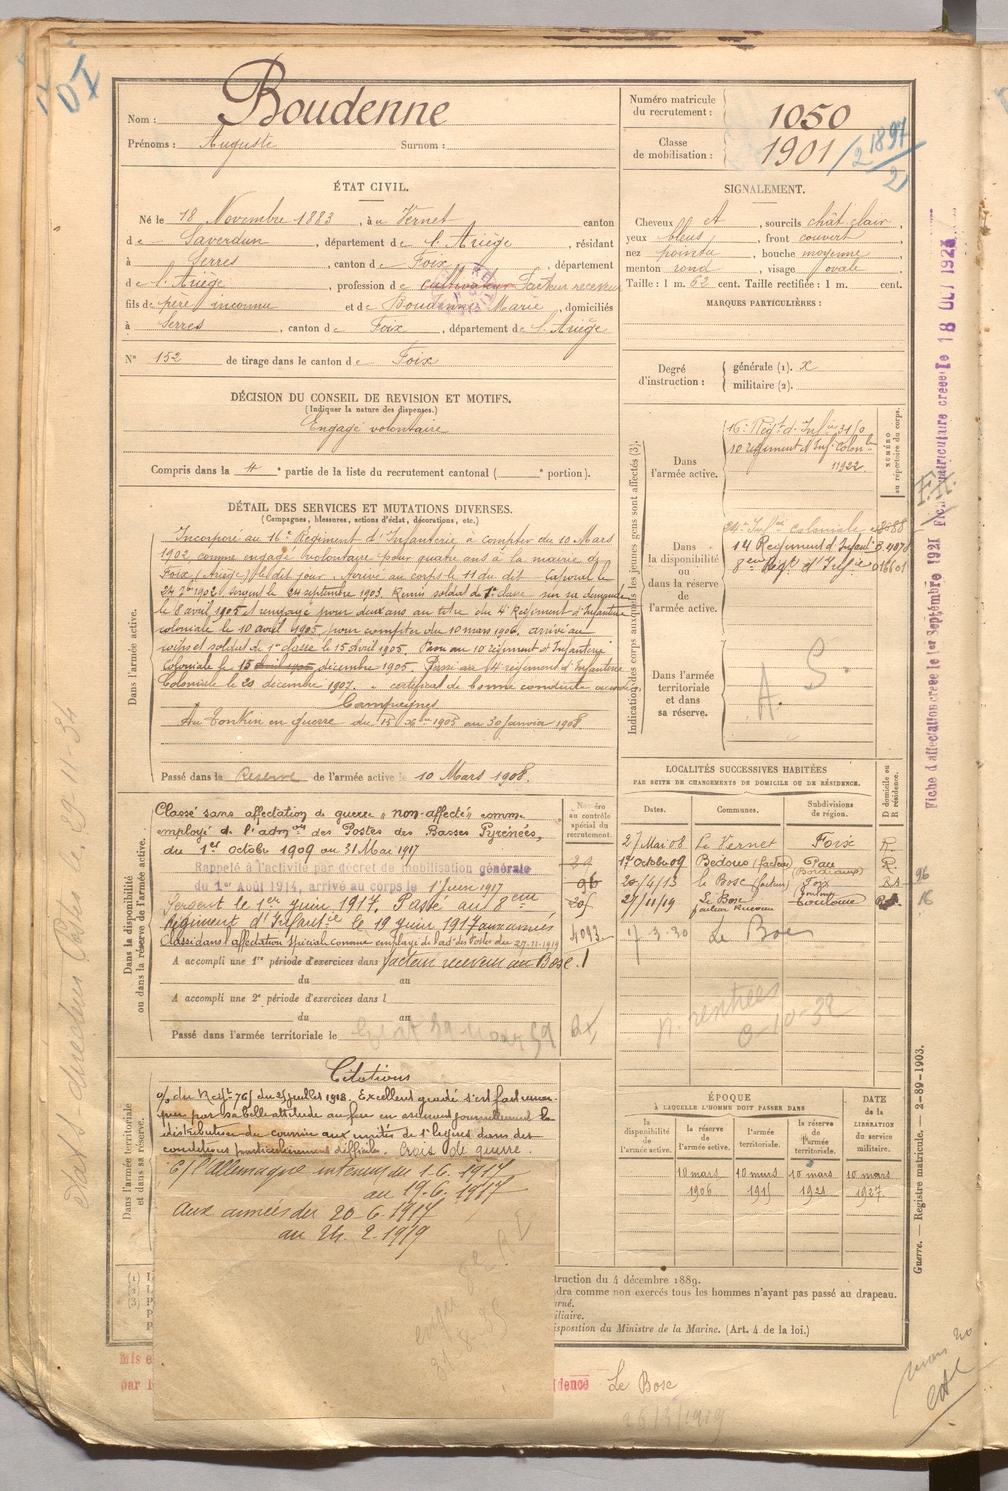 Nom : Boudenne
Prénoms : Auguste Surnom :
Numéro matricule du recrutement : 1050
Classe de mobilisation : 1901 / 2 1897 / 21
ÉTAT CIVIL.
Né le 18 Novembre 1883, à u Vernet canton
de Saverdun, département de l'Ariège, résidant
à Serres, canton de Foix, département
de l'Ariège, profession de cultivateur Facteur receveur
fils de père inconnu et de Boudenne Marie, domiciliés
à Serres, canton de Foix, département de l'Ariège
N° 152 de tirage dans le canton de Foix
SIGNALEMENT.
Cheveux ct, sourcils chât clair,
yeux bleus, front couvert,
nez pointu, bouche moyenne,
menton rond, visage ovale
Taille : 1 m. 62 cent. Taille rectifiée : 1 m. cent.
MARQUES PARTICULIÈRES :
Degré d'instruction : générale (1). x
militaire (2).
DÉCISION DU CONSEIL DE REVISION ET MOTIFS.
(Indiquer la nature des dispenses.)
Engagé volontaire
Compris dans la 4e partie de la liste du recrutement cantonal ( e portion).
DÉTAIL DES SERVICES ET MUTATIONS DIVERSES.
(Campagnes, blessures, actions d'éclat, décorations, etc.)
Dans l'armée active.
Incorporé au 16e Régiment d'Infanterie à compter du 10 Mars
1902, comme engagé volontaire pour quatre ans à la mairie de
Foix (Ariège) le dit jour. Arrivé au corps le 11 du dit. Caporal le
27 7bre 1902. Sergent le 24 septembre 1903. Remis soldat de 1e classe sur sa demande
le 8 avril 1905. et rengagé pour deux ans au titre du 4e Régiment d'Infanterie
coloniale le 10 avril 1905, pour compter du 10 mars 1906, arrivé au
corps et soldat de 1re classe le 15 Avril 1905. Passé au 10 régiment d'Infanterie
Coloniale le 15 avril 1905 décembre 1905. Passé au 14 régiment d'Infanterie
Coloniale le 20 décembre 1907. certificat de bonne conduite accordé.
Campagnes
Au Tonkin en guerre du 15 Xbre 1905 au 30 Janvier 1908.
Passé dans la Réserve de l'armée active le 10 Mars 1908.
Indication des corps auxquels les jeunes gens sont affectés (3).
NUMÉRO au répertoire du corps.
Dans l'armée active.
16e Régt d'Infie 31/0
10 régiment d'Inf. Colonle
11922
Dans la disponibilité ou dans la réserve de l'armée active.
24e Infie Coloniale
14 Régiment d'Infantie
8eme Régt d'Infie 016601
Dans l'armée territoriale et dans sa réserve.
A. S.
Dans la disponibilité ou dans la réserve de l'armée active.
Classé sans affectation de guerre "non-affecté" comme
employé de l'admon des Postes des Basses Pyrénées,
du 1er octobre 1909 au 31 Mai 1917
Rappelé à l'activité par décret de mobilisation générale
du 1er Août 1914, arrivé au corps le 1 Juin 1917
Sergent le 1er juin 1917. Passé au 8eme
Régiment d'Infantie le 19 juin 1917 aux armées
Classé dans l'affectation spéciale comme employé de l'adon des Postes du 27-11-1919
A accompli une 1re période d'exercices dans facteur receveur au Bosc.
du au
A accompli une 2e période d'exercices dans l
du au
Passé dans l'armée territoriale le
Numéro au contrôle spécial du recrutement.
96
4093
LOCALITÉS SUCCESSIVES HABITÉES
PAR SUITE DE CHANGEMENTS DE DOMICILE OU DE RÉSIDENCE.
Dates. Communes. Subdivisions de région. D domicile ou R résidence.
27 Mai 08 Le Vernet Foix R.
1er Octobre 09 Bedous (facteur) Pau (Bordeaux) R.
20/4/13 le Bosc (facteur) Foix
27/11/19 Le Bosc facteur Receveur Toulouse
17.3.30 Le Bosc
n. rentrées
96
16
Dans l'armée territoriale et dans sa réserve.
Citations
O/ du Régt 76 du 25 juillet 1918. Excellent gradé s'est fait remar-
quer par sa belle attitude au feu en assurant journellement la
distribution du courrier aux unités de 1e lignes dans des
conditions particulièrement difficiles. Croix de guerre.
C/ l'Allemagne intérieur du 1.6.1917
au 19.6.1917
Aux armées du 20.6.1917
au 24.2.1919
31-8-35
ÉPOQUE
À LAQUELLE L'HOMME DOIT PASSER DANS
la disponibilité de l'armée active. la réserve de l'armée active. l'armée territoriale. la réserve de l'armée territoriale.
DATE de la LIBÉRATION du service militaire.
10 mars 1906 10 mars 10 mars 10 mars 1927.
(1) I
(2)
(3) P
truction du 4 décembre 1889.
dra comme non exercés tous les hommes n'ayant pas passé au drapeau.
rné.
iliaire.
isposition du Ministre de la Marine. (Art. 4 de la loi.)
Mis e
par l
idence Le Bosc
Guerre. — Registre matricule. — 2-89-1903.
Fiche d'affectation créée le 1er Septembre 1921
Fiche matriculaire créée le 18 OCT 1923